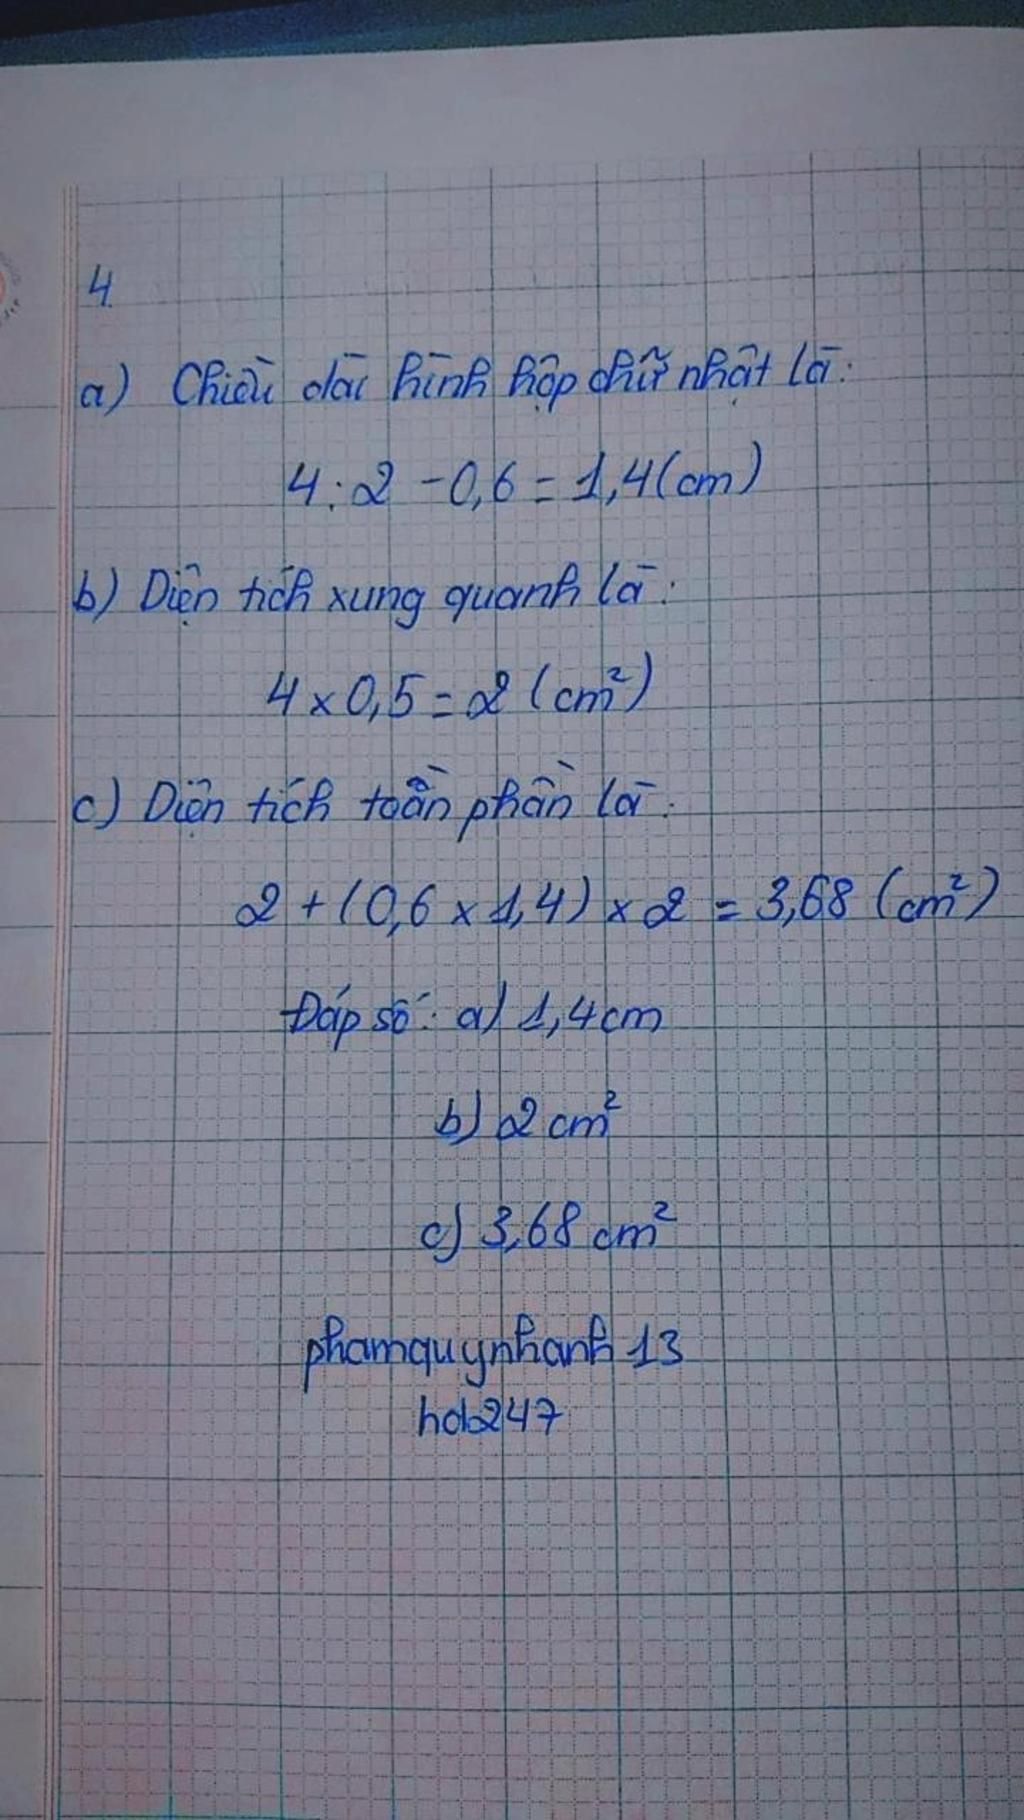 4.
a) Chiều dài hình hộp chữ nhật là:
4 : 2 - 0,6 = 1,4 (cm)
b) Diện tích xung quanh là:
4 x 0,5 = 2 (cm²)
c) Diện tích toàn phần là:
2 + (0,6 x 1,4) x 2 = 3,68 (cm²)
Đáp số: a) 1,4 cm
b) 2 cm²
c) 3,68 cm²
phamquynhanh 13
hdo247